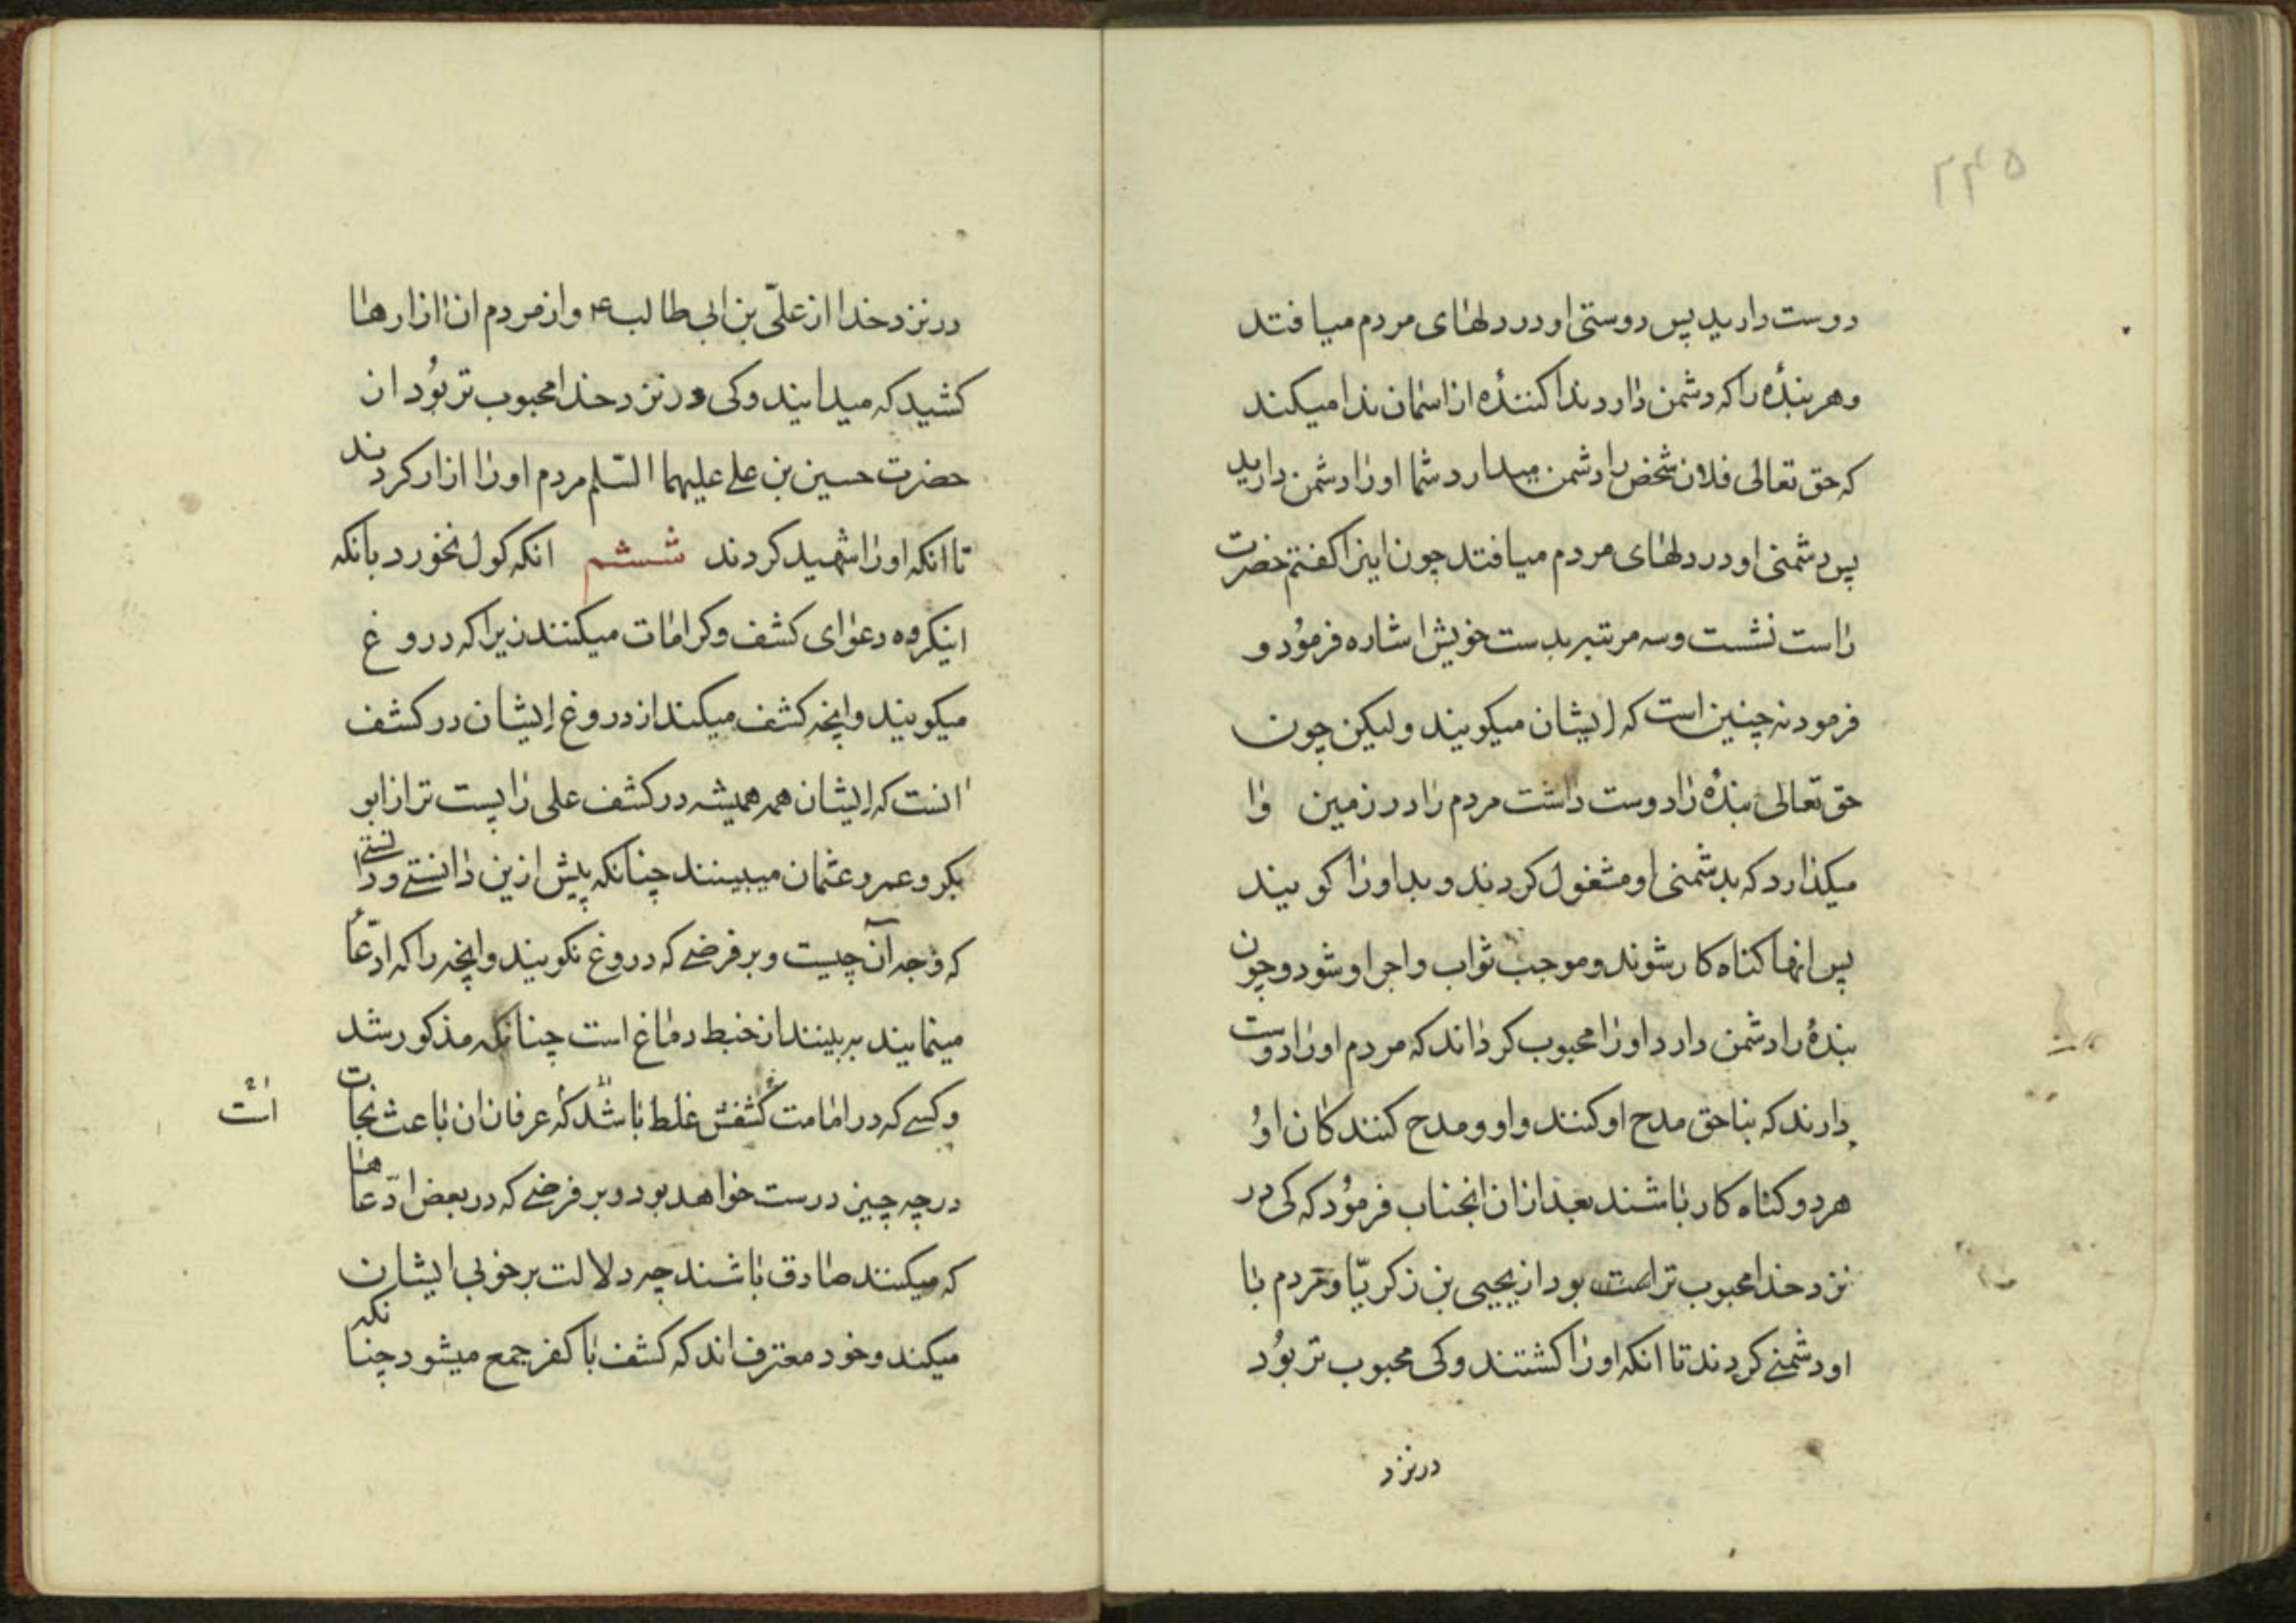 ۲۴۵
دوست دارید پس دوستی او در دلهای مردم میافتد
و هر بندهٔ را که دشمن دارد ندا کنندهٔ از اسمان ندا میکند
که حق تعالی فلان شخص را دشمن میدارد شما او را دشمن دارید
پس دشمنی او در دلهای مردم میافتد چون اینرا کفتم حضرت
راست نشست و سه مرتبه بدست خویش اشاره فرمود و
فرمود نه چنین است که ایشان میکویند ولیکن چون
حق تعالی بندهٔ را دوست داشت مردم را در زمین وا
میکذارد که بدشمنی او مشغول کردند و بد او را کویند
پس انها کناه کار شوند و موجب ثواب و اجر او شود و چون
بندهٔ را دشمن دارد او را محبوب کرداند که مردم او را دوست
دارند که بناحق مدح او کنند و او و مدح کنندکان او
هر دو کناه کار باشند بعد از ان انجناب فرمود که کی در
نزد خدا محبوب تر است بود از یحیی بن زکریّا و مردم با
او دشمنی کردند تا انکه او را کشتند و کی محبوب تر بود
در نزد
در نزد خدا از علیّ بن ابی طالب ع و از مردم ان ازارها
کشید که میدانید و کی در نزد خدا محبوب تر بود از
حضرت حسین بن علی علیهما السّلم مردم او را ازار کردند
تا انکه او را شهید کردند ششم انکه کول نخورد بانکه
اینکروه دعوای کشف و کرامات میکنند زیرا که دروغ
میکویند و انچه کشف میکند از دروغ ایشان در کشف
انست که ایشان همه همیشه در کشف علی را پست تر از ابو
بکر و عمر و عثمان میبینند چنانکه پیش ازین دانستی و دانستی
که وجه آن چیست و بر فرضی که دروغ نکویند و انچه را که ادّعا
مینمایند ببینند از خبط دماغ است چنانکه مذکور شد
و کسی که در امامت کشفش غلط باشد که عرفان ان باعث نجات
است
در چه چیز درست خواهد بود و بر فرضی که در بعض ادّعاها
که میکنند صادق باشند چه دلالت بر خوبی ایشان
میکند و خود معترف اند که کشف با کفر جمع میشود چنانکه